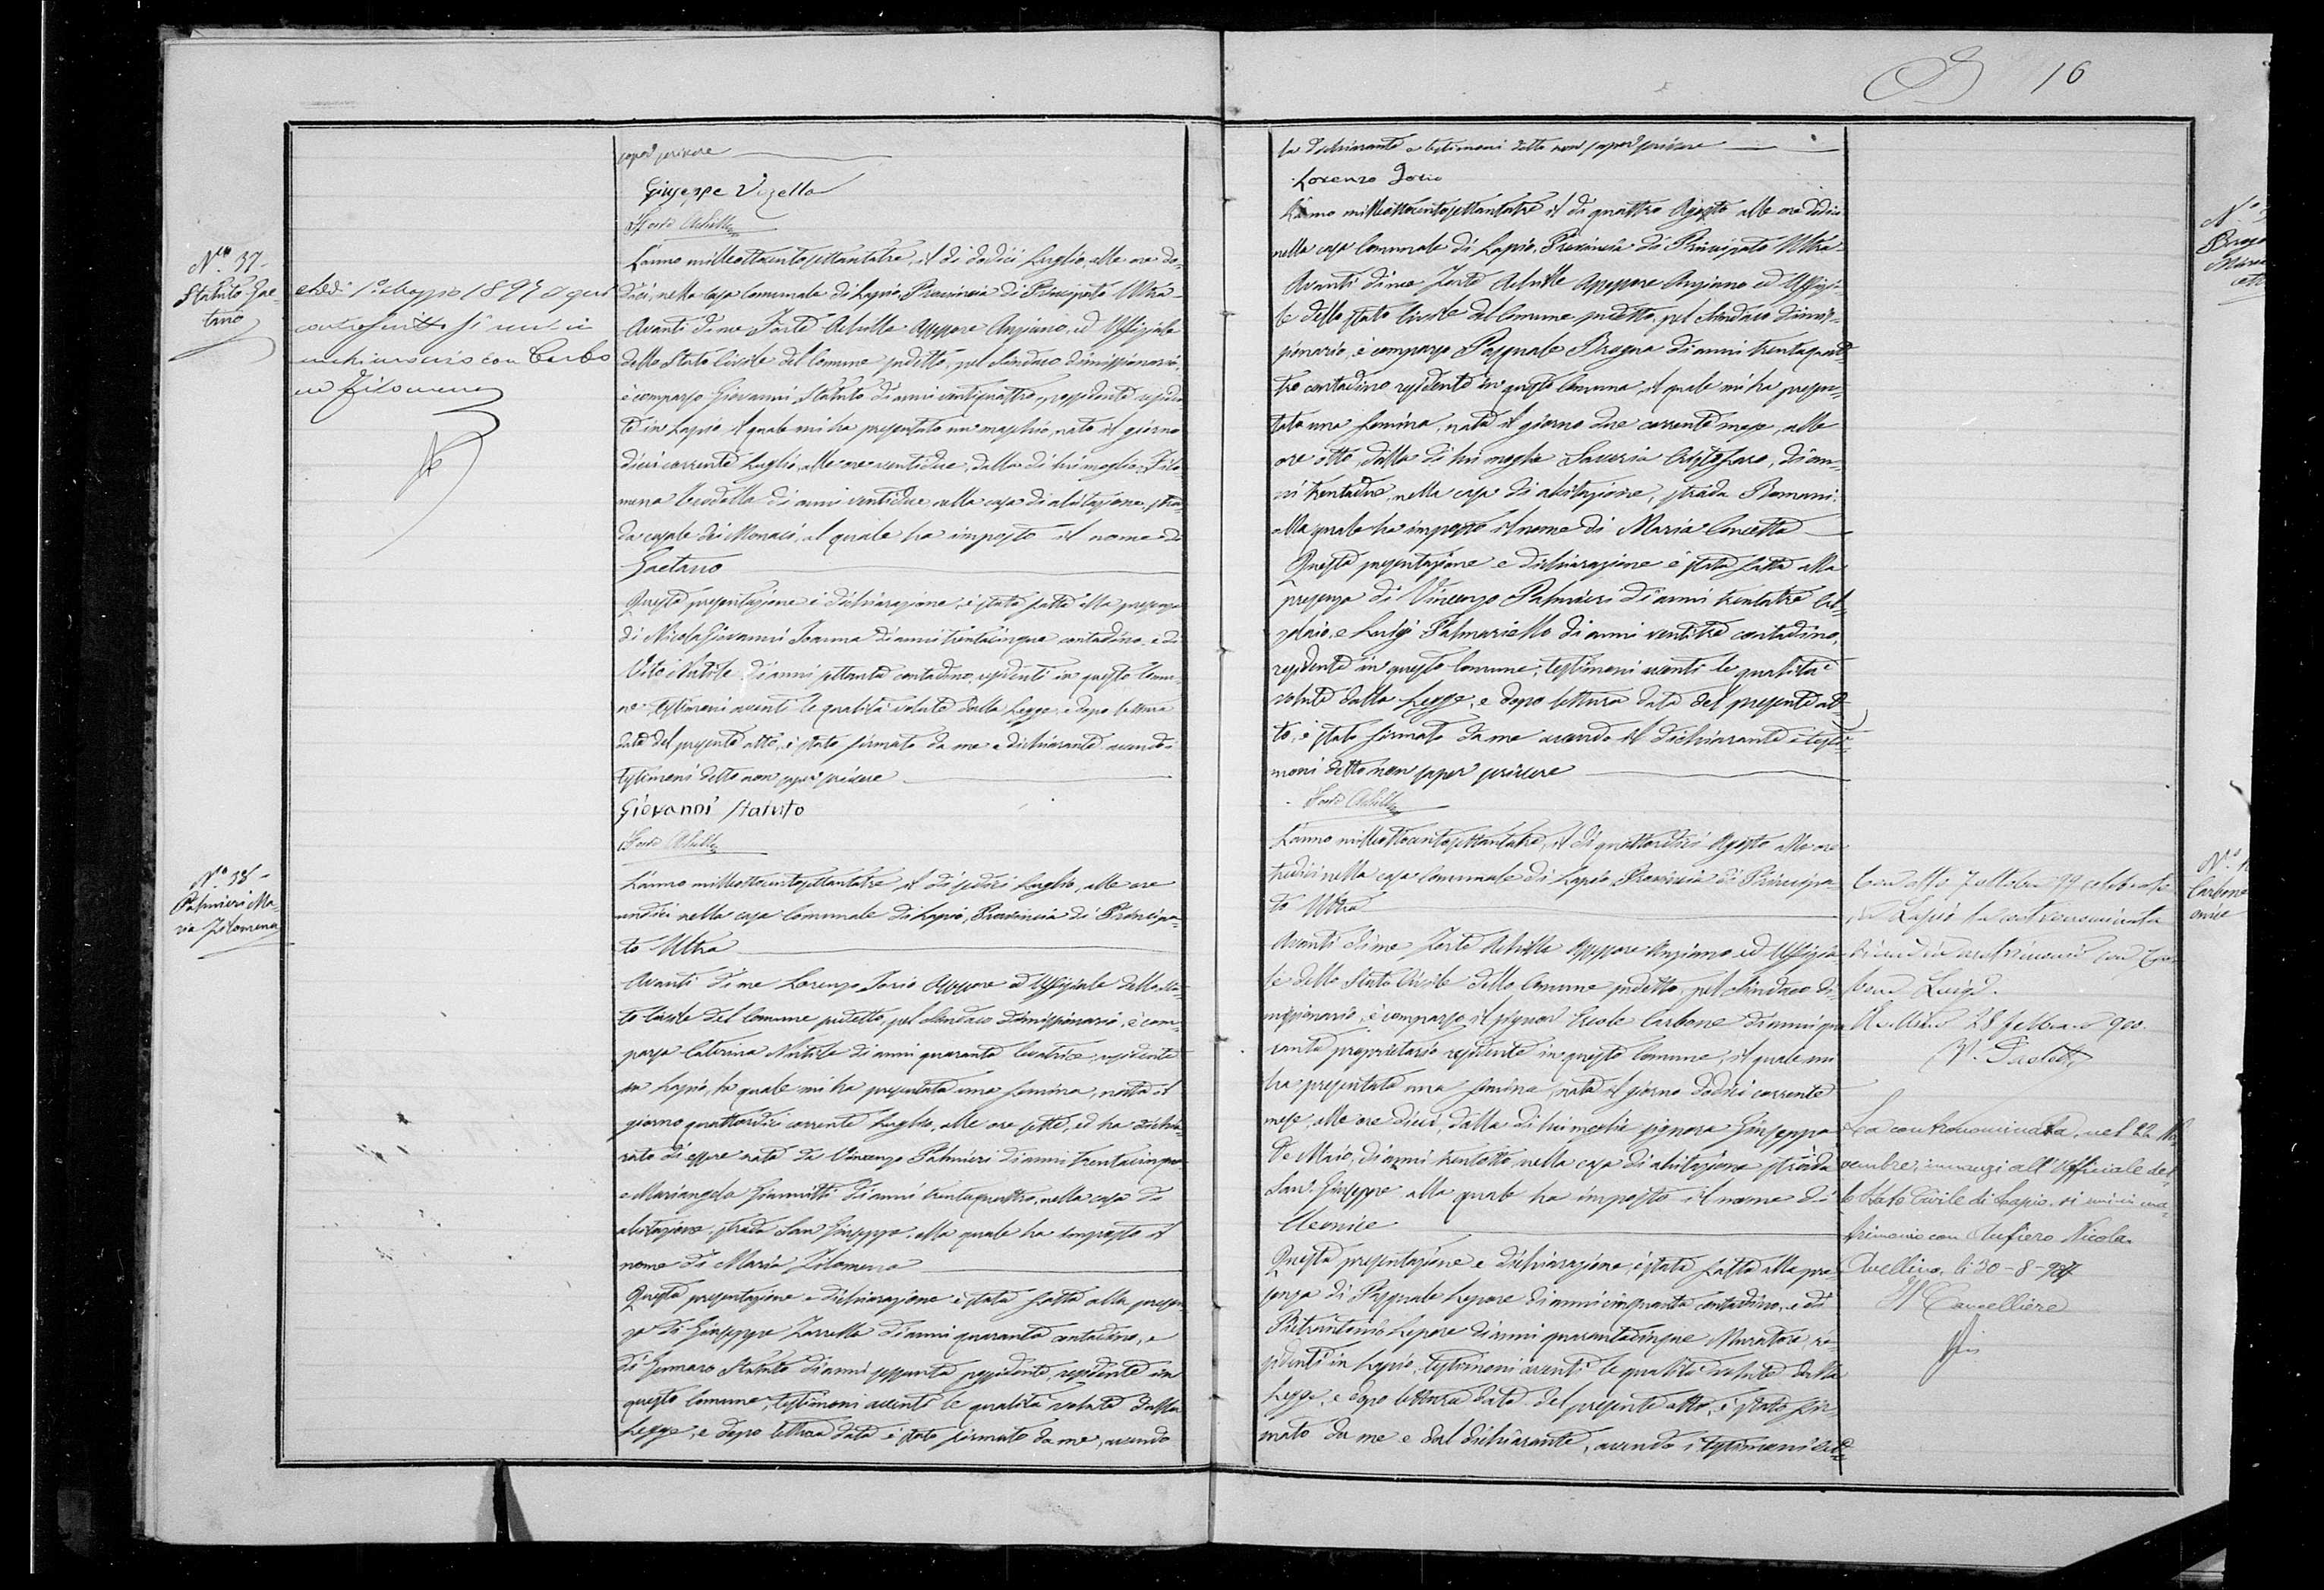 16
saper scrivere
Giuseppe Vozella
Forte Achille
N.° 37-
Statuto Gae-
tano
L'anno milleottocentosettantatre, il dì dodici Luglio, alle ore do-
dici, nella casa Comunale di Lapio, Provincia di Principato Ultra-
Avanti di me Forte Achille Assessore Anziano, ed Uffiziale
dello Stato Civile del Comune predetto, pel Sindaco dimissionario,
è comparso Giovanni Statuto di anni ventiquattro, possidente residen-
te in Lapio il quale mi ha presentato un maschio, nato il giorno
dieci corrente Luglio, alle ore ventidue, dalla di lui moglie Filo-
mena di anni ventidue, nella casa di abitazione, stra-
da casale dei Monaci, al quale ha imposto il nome di
Gaetano
Questa presentazione e dichiarazione, è stata fatta alla presenza
di Nicola Giovanni Ioanna di anni trentacinque contadino, e di
Vito Natile di anni settanta contadino, residenti in questo Comu-
ne testimoni aventi le qualità volute dalla Legge, e dopo lettura
data del presente atto, è stato firmato da me e dichiarante avendo i
testimoni detto non saper scrivere
Giovanni Statuto
Forte Achille
1° Maggio 1895 il qui
controscritto si unì in
matrimonio con Carbo
ne Filomena
N.° 38-
Palmieri Ma-
ria Filomena
L'anno milleottocentosettantatre, il dì sedici Luglio, alle ore
undici nella casa Comunale di Lapio, Provincia di Principa-
to Ultra
Avanti di me Lorenzo Iorio Assessore ed Uffiziale dello Sta-
to Civile del Comune predetto, pel Sindaco dimissionario, è com-
parsa Caterina Natile di anni quaranta levatrice, residente
in Lapio, la quale mi ha presentata una femina, nata il
giorno quattordici corrente Luglio, alle ore sette, ed ha dichia-
rato di essere nata da Vincenzo Palmieri di anni trentacinque
e Mariangela Giannitti di anni trentaquattro, nella casa di
abitazione strada San Giuseppe, alla quale ha imposto il
nome di Maria Filomena
Questa presentazione e dichiarazione è stata fatta alla presen-
za di Giuseppe Zarrella di anni quaranta contadino, e
di Gennaro Statuto di anni sessanta possidente, residente in
questo Comune, testimoni aventi le qualità volute dalla
Legge, e dopo lettura data è stato firmato da me, avendo
la dichiarante e testimoni detto non saper scrivere
Lorenzo Iorio
L'anno milleottocentosettantatre il dì quattro Agosto alle ore dodici
nella casa Comunale di Lapio, Provincia di Principato Ultra-
Avanti di me Forte Achille Assessore Anziano ed Uffizia-
le dello Stato Civile del Comune predetto, pel Sindaco dimis-
sionario, è comparso Pasquale Brogna di anni trentaquat-
tro contadino residente in questo Comune, il quale mi ha presen-
tata una femina, nata il giorno due corrente mese, alle
ore otto, dalla di lui moglie Saveria Cristofaro, di an-
ni trentadue, nella casa di abitazione, strada Romani.
alla quale ha imposto il nome di Maria Concetta
Questa presentazione e dichiarazione è stata fatta alla
presenza di Vincenzo Palmieri di anni trentatre Cal-
zolaio, e Luigi Palmariello di anni ventitre contadino,
residente in questo Comune, testimoni aventi le qualità
volute dalla Legge, e dopo lettura data del presente at-
to, è stato firmato da me avendo il dichiarante e testi-
moni detto non saper scrivere
Forte Achille
L'anno milleottocentosettantatre, il dì quattordici Agosto alle ore
tredici nella casa comunale di Lapio, Provincia di Principa-
to Ultra
Avanti di me Forte Achille Assessore Anziano ed Uffizia-
le dello Stato Civile dello Comune predetto, pel Sindaco di-
missionario, è comparso il signor Ercole Carbone di anni qua-
ranta proprietario residente in questo Comune, il quale mi
ha presentata una femina, nata il giorno dodici corrente
mese, alle ore dieci, dalla di lui moglie signora Giuseppa
De Maio, di anni trentotto, nella casa di abitazione strada
San Giuseppe alla quale ha imposto il nome di
Cleonice
Questa presentazione e dichiarazione, è stata fatta alla pre-
senza di Pasquale Lepore di anni cinquanta contadino, e di
Pietrantonio Lepore di anni quarantacinque Muratore, re-
sidenti in Lapio, testimoni aventi le qualità volute dalla
Legge, e dopo lettura data del presente atto, è stato fir-
mato da me e dal dichiarante, avendo i testimoni det-
N.°
Carbone
Con atto 7 ottobre 99 celebrato
in Lapio la controscritta
si unì in matrimonio con
Luigi.
Avellino 28 febbraio 900.
La contronominata, nel 22 No-
vembre, innanzi all'Ufficiale del-
lo Stato Civile di Lapio, si unì in ma-
trimonio con Aufiero Nicola.
Avellino, li 30-8-
Il Cancelliere